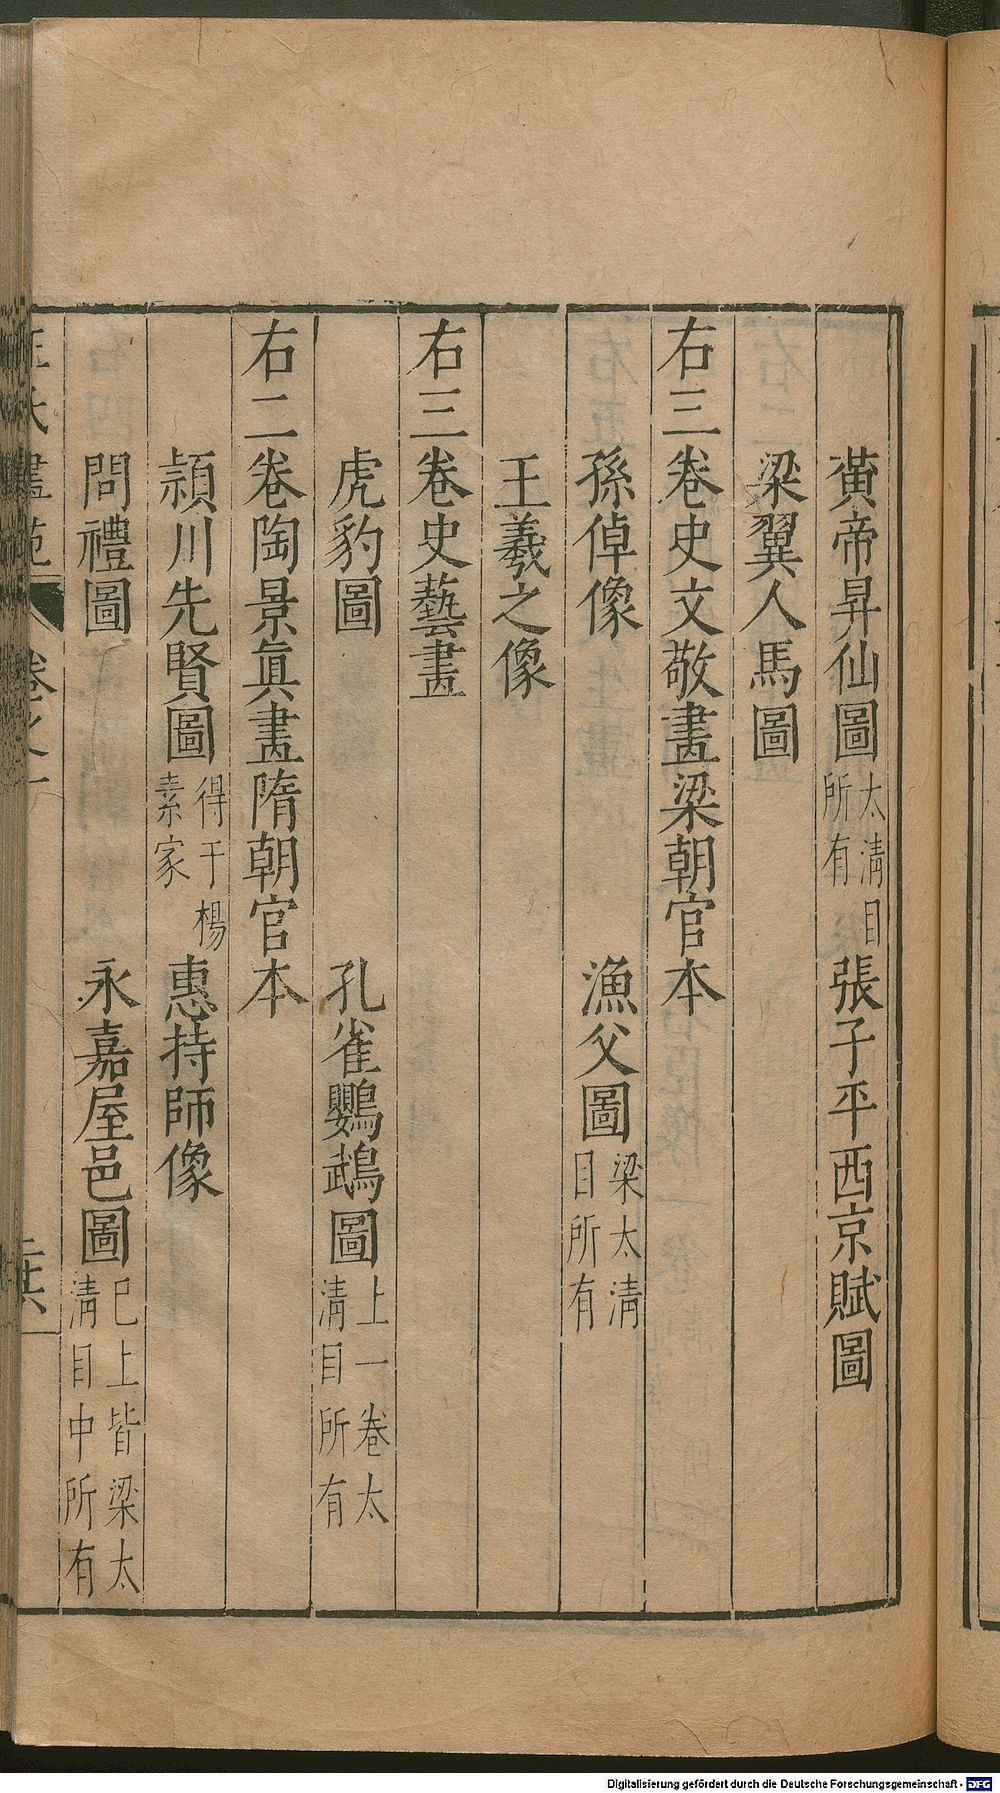 黃帝昇仙圖太淸目所有張子平西京賦圖
梁翼人馬圖
右三卷史文敬畫梁朝官本
孫倬像漁父圖梁太淸目所有
王羲之像
右三卷史藝畫
虎豹圖孔雀鸚鵡圖上一卷太淸目所有
右二卷陶景眞畫隋朝官本
頴川先賢圖得于楊素家惠持師像
問禮圖永嘉屋邑圖已上皆梁太淸目中所有
王氏畫苑 卷之一
Digitalisierung gefördert durch die Deutsche Forschungsgemeinschaft - DFG